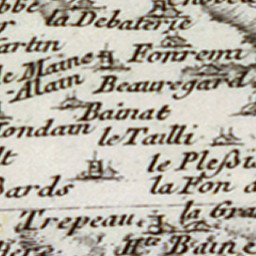 la Debaterie
artin
Fonremi
le Maine
Alain
Beauregard
Bainat
ondain
le Tailli
lt
le Pleßis
Bards
la Fon
Trepeau
la Gra
Hte Baine